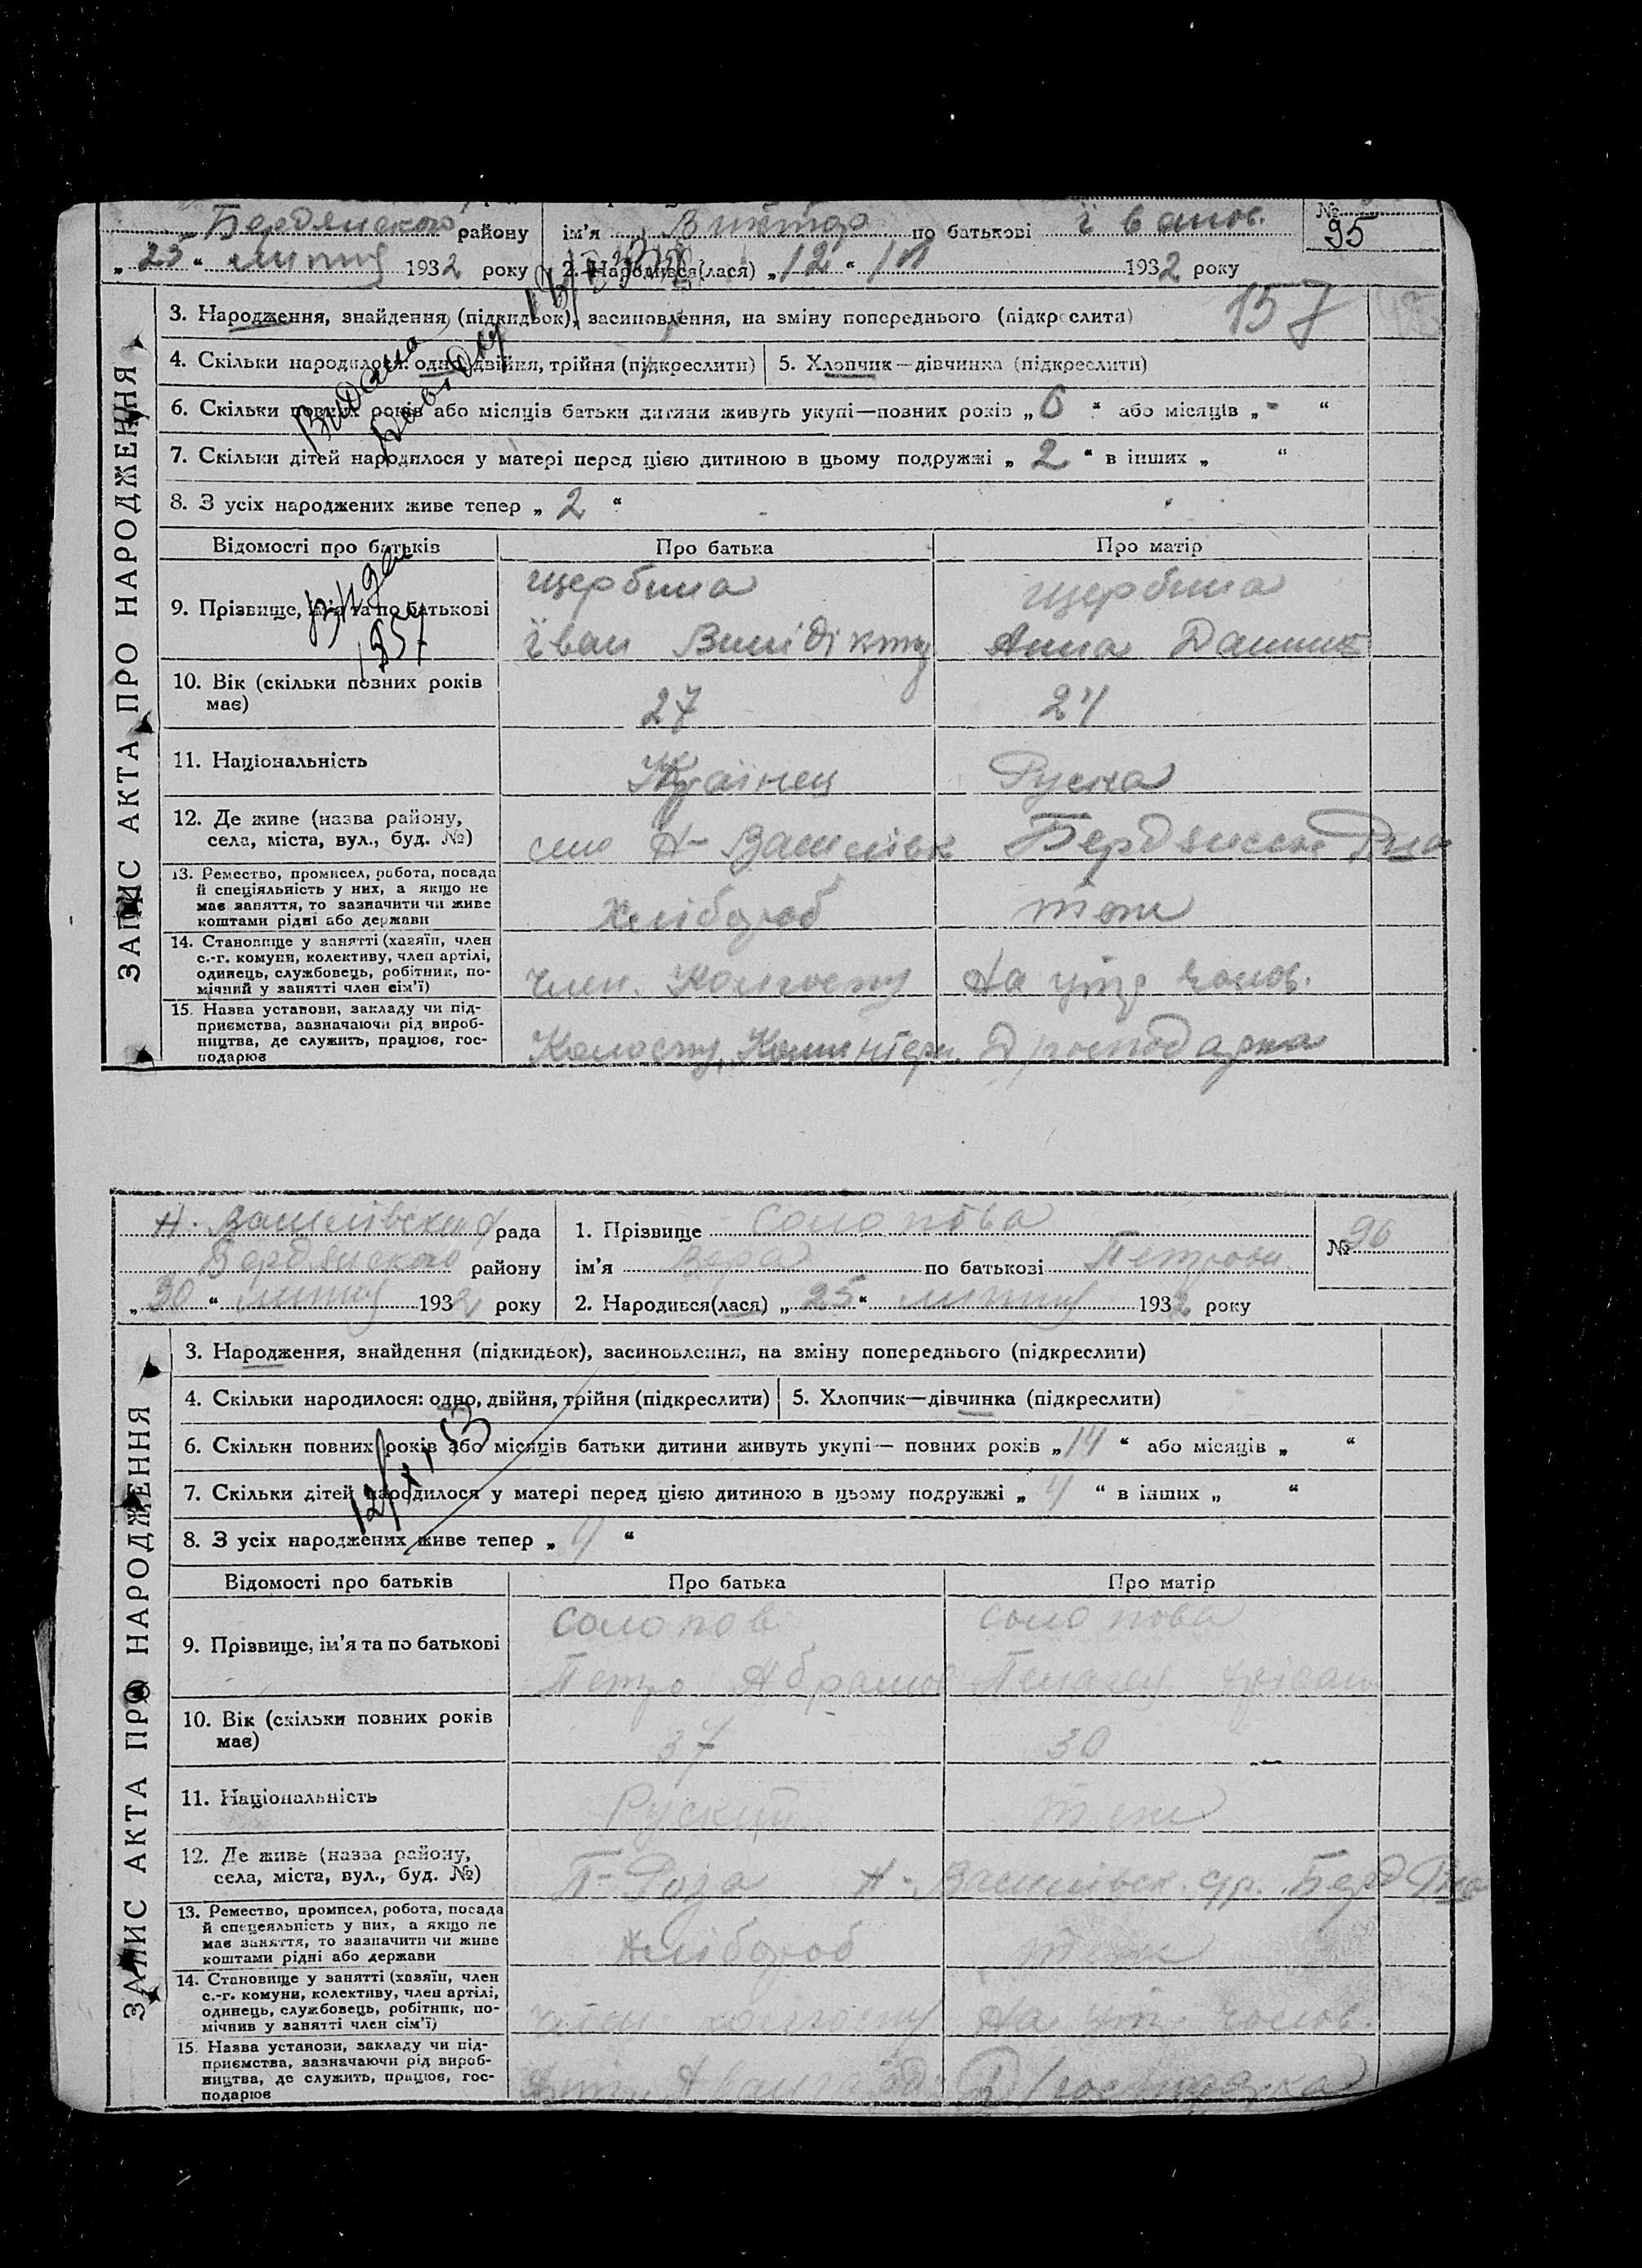 Бердянского району ім'я Виктор по батькові Іванов. № 95
„ 25 “ липня 1932 року 2. Народився(лася) „ 12 “ 1932 року
ЗАПИС АКТА ПРО НАРОДЖЕННЯ
3. Народження, знайдення (підкидьок), засиновлення, на зміну попереднього (підкреслити) 157
4. Скільки народилося: одно, двійня, трійня (підкреслити) 5. Хлопчик—дівчинка (підкреслити)
6. Скільки повних років або місяців батьки дитини живуть укупі—повних років „ 6 “ або місяців „ - “
7. Скільки дітей народилося у матері перед цією дитиною в цьому подружжі „ 2 “ в інших „ “
8. З усіх народжених живе тепер „ 2 “
Видана
Відомості про батьків Про батька Про матір
9. Прізвище, ім'я та по батькові
Щербина Щербина
Іван Анна
10. Вік (скільки повних років
має)
27 24
11. Національність Українец Руска
12. Де живе (назва району,
села, міста, вул., буд. №)
село Н-Василівк Бердянськ Р-на
13. Ремество, промисел, робота, посада
й спеціяльність у них, а якщо не
має заняття, то зазначити чи живе
коштами рідні або держави
Хлібороб тож
14. Становище у занятті (хазяїн, член
с.-г. комуни, колективу, член артілі,
одинець, службовець, робітник, по-
мічний у занятті член сім'ї)
Член. Колгоспу На утр. чолов.
15. Назва установи, закладу чи під-
приємства, зазначаючи рід вироб-
ництва, де служить, працює, гос-
подарює
Комінтерн. Д/господарка
Н. Василівська рада 1. Прізвище Солопова № 96
Бердянского району ім'я Вера по батькові Петровн.
„ 30 “ липня 1932 року 2. Народився(лася) „ 25 “ липня 1932 року
ЗАПИС АКТА ПРО НАРОДЖЕННЯ
3. Народження, знайдення (підкидьок), засиновлення, на зміну попереднього (підкреслити)
4. Скільки народилося: одно, двійня, трійня (підкреслити) 5. Хлопчик—дівчинка (підкреслити)
6. Скільки повних років або місяців батьки дитини живуть укупі— повних років „ 14 “ або місяців „ “
7. Скільки дітей народилося у матері перед цією дитиною в цьому подружжі „ 4 “ в інших „ “
8. З усіх народжених живе тепер „ 4 “
Відомості про батьків Про батька Про матір
9. Прізвище, ім'я та по батькові
Солопов Солопова
Петро Абрамов Пелагея
10. Вік (скільки повних років
має)
37 30
11. Національність Руский теж
12. Де живе (назва району,
села, міста, вул., буд. №)
П-Роза Н-Василівск. с/р. Берд Р-на
13. Ремество, промисел, робота, посада
й спецеяльність у них, а якщо не
має заняття, то зазначити чи живе
коштами рідні або держави
Хлібороб теж
14. Становище у занятті (хазяїн, член
с.-г. комуни, колективу, член артілі,
одинець, службовець, робітник, по-
мічнив у занятті член сім'ї)
член колгоспу На утр. чолов.
15. Назва установи, закладу чи під-
приємства, зазначаючи рід вироб-
ництва, де служить, працює, гос-
подарює
Д/господарка